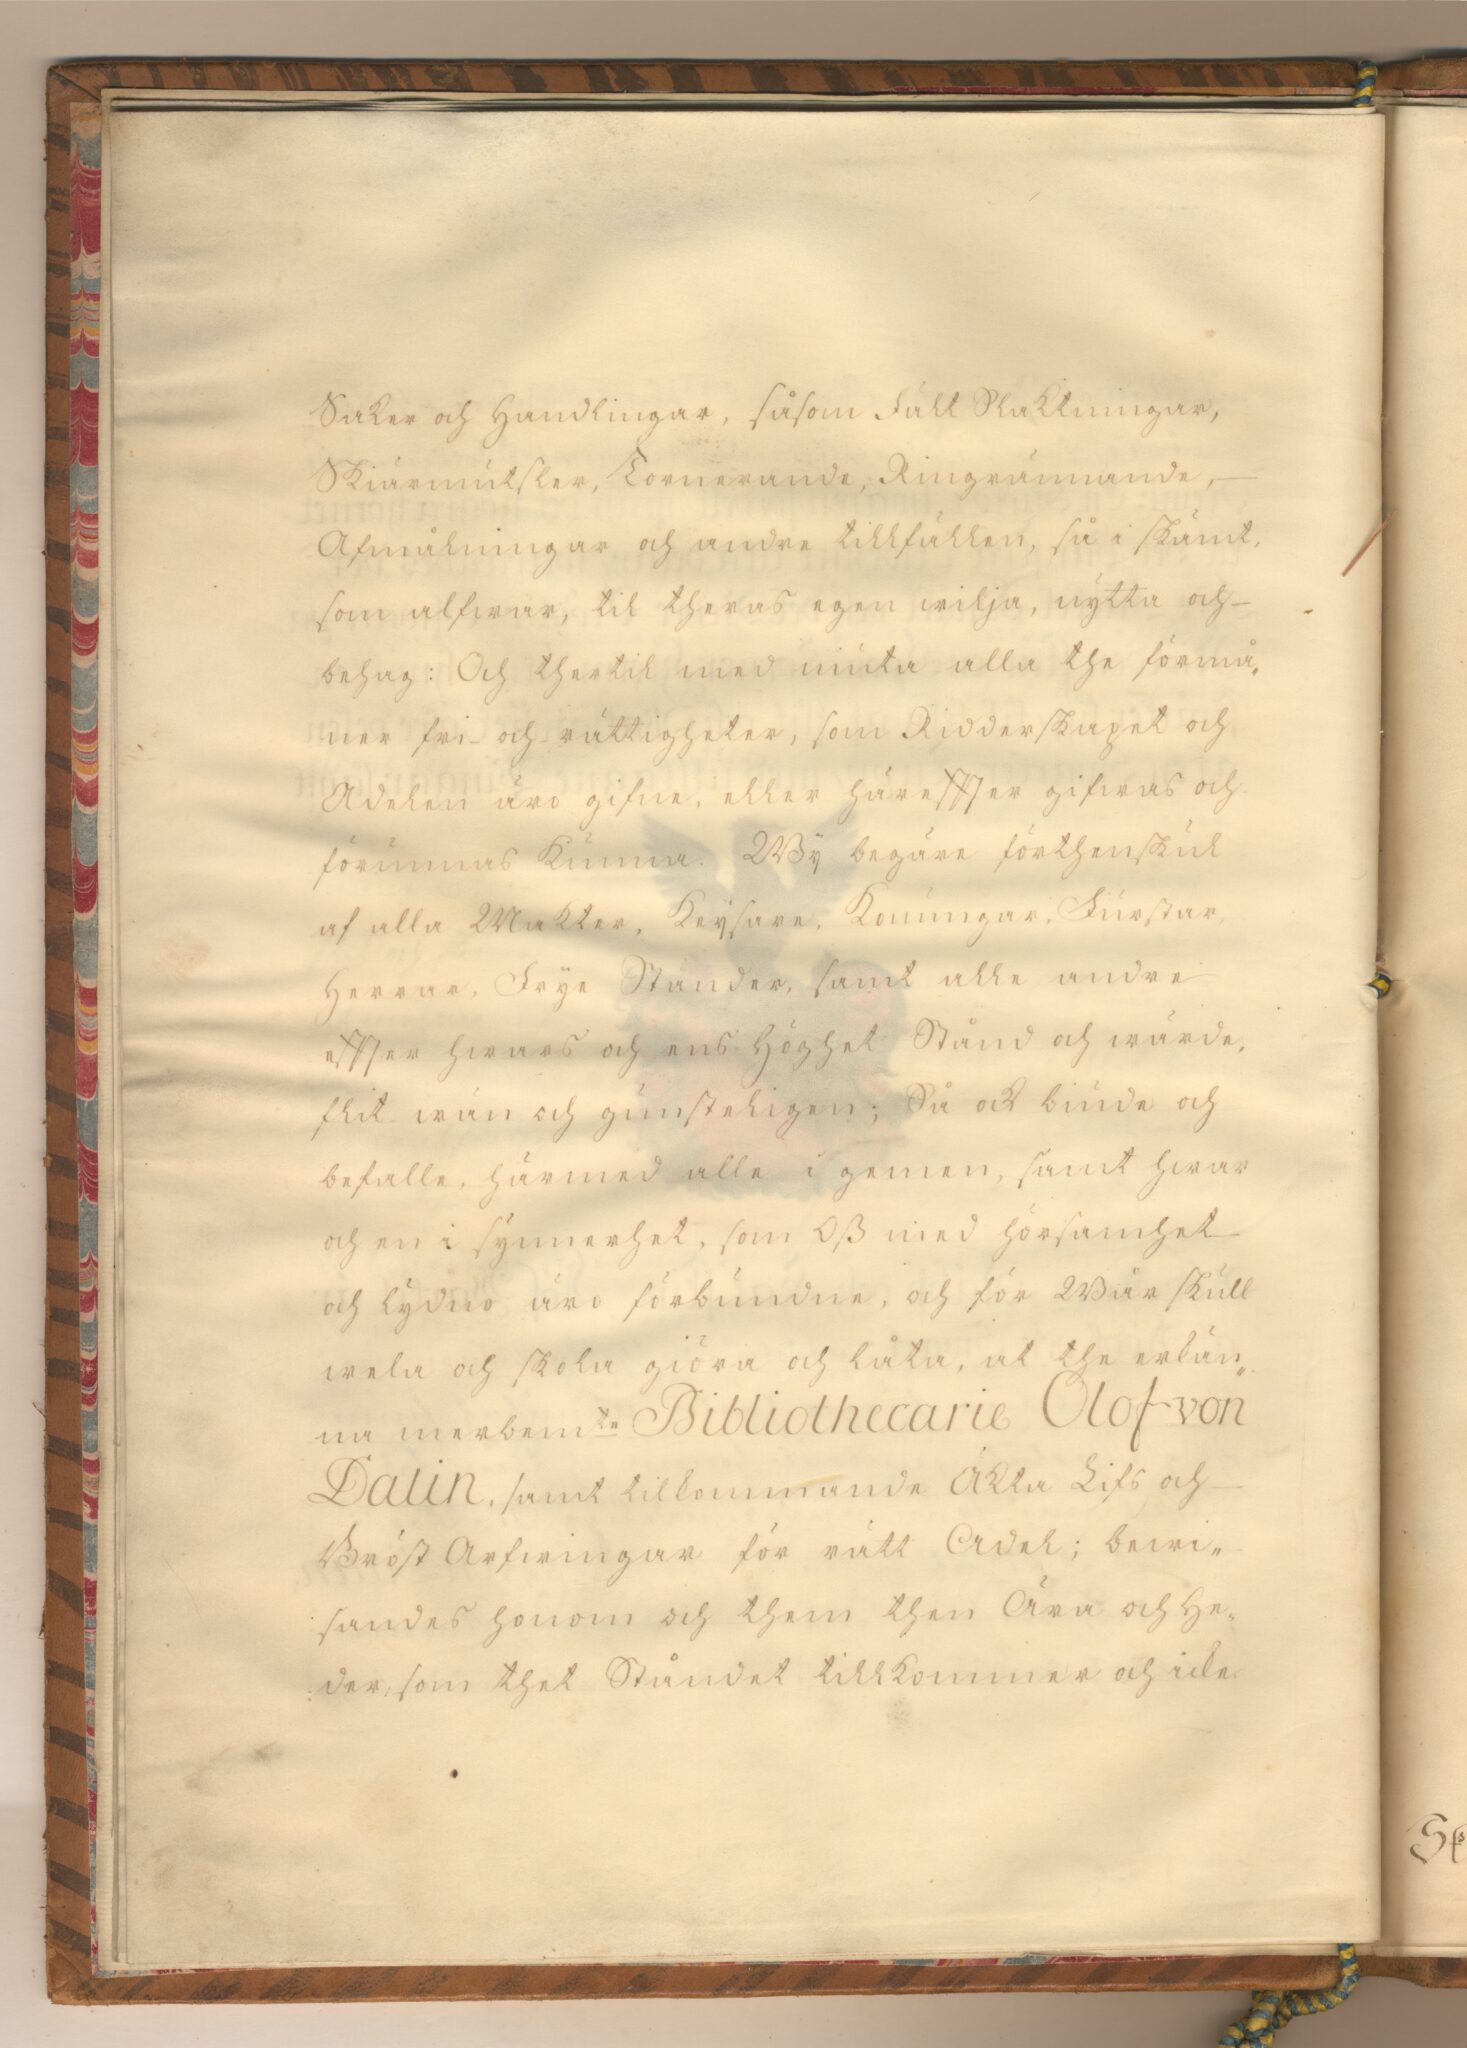 Saker och Handlingar, såsom Fält Slaktningar,
Skiärmütsler, Tornerande, Ringrännande,
Afmålningar och andre tillfällen, så i skämt,
som alfwar, til theras egen wilja, nytta och
behag: Och thertil med niuta alla the förmå„
ner fri- och rättigheter, som Ridderskapet och
Adelen äro gifne, eller häreffter gifwas och
förunnas kunna. Wÿ begäre förthenskul
af alla Makter, Keÿsare, Konungar, Furstar,
Herrar, Frÿe Ständer, samt alle andre
effter hwars och ens Höghet Stånd och wärde,
flit wän och gunsteligen; Så ock biude och
befalle, härmed alle i gemen, samt hwar
och en i sÿnnerhet, som Oß med hörsamhet
och lÿdno äro förbundne, och för Wår skull
wela och skola giöra och låta, at the erkän„
na merbemte Bibliothecarie Olof von
Dalin, samt tilkommande Äkta Lifs och
Bröst Arfwingar för rätt Adel; bewi„
sandes honom och them then Ära och He„
der, som thet Ståndet tillkommer och icke
Sk